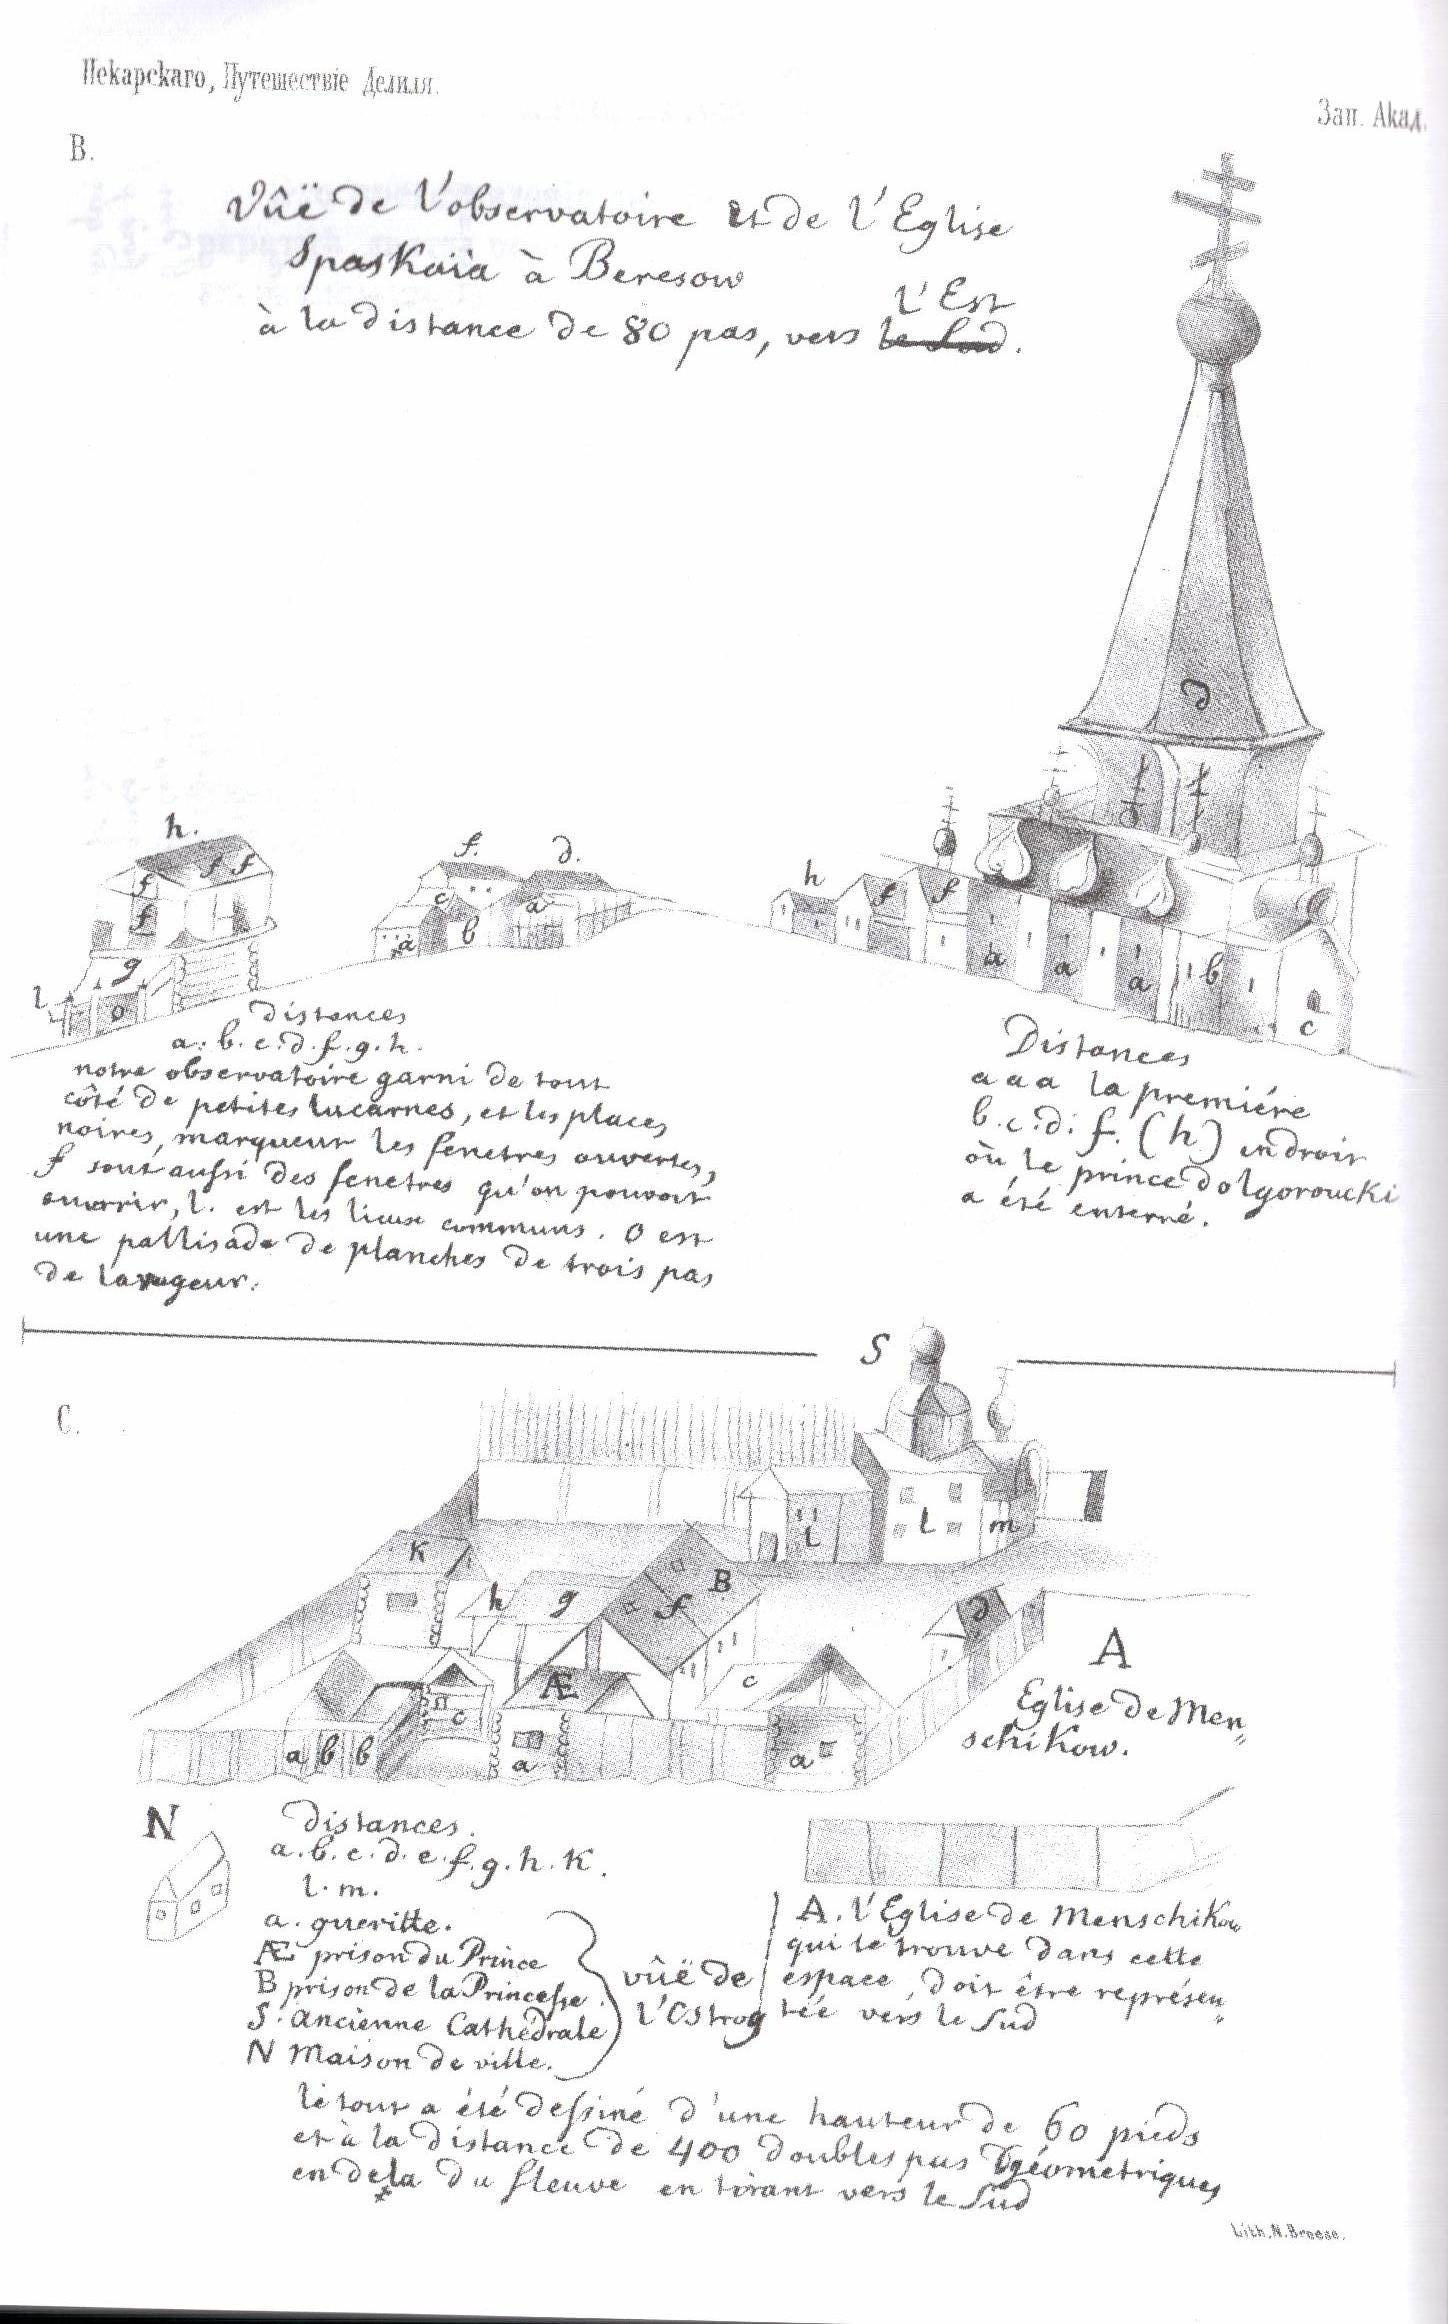 Пекарскаго, Путешествіе Делиля.
Зап. Акад.
B.
Vûë de l'observatoire et de l'Eglise
Spaskaïa à Beresow
l'Est
à la distance de 80 pas, vers le Sud.
d
h.
f f
f
f
g
l
o
f.
d.
c
a
a
b
h
f
f
a
a
a
b
c
Distances
a. b. c. d. f. g. h.
notre observatoire garni de tout
côté de petites lucarnes, et les places
noires, marqueur les fenetres ouvertes,
f sont aussi des fenetres qu'on pouvoit
ouvrir, l. est les lieux communs. O est
une pallisade de planches de trois pas
de largeur.
Distances
a a a la premiére
b. c. d. f. (h) endroit
où le prince Dolgoroucki
a été enterré.
C.
S
K
h
g
B
f
l
l
m
d
c
Æ
c
a b b
a
a
A
Eglise de Men„
schikow.
N
Distances.
a. b. c. d. e. f. g. h. K.
l. m.
a. gueritte.
Æ prison du Prince
B prison de la Princesse.
S. Ancienne Cathedrale
N Maison de ville.
vûë de
l'Ostrog
A. l'Eglise de Menschikow
qui se trouve dans cette
espace, doit être représen„
tée vers le Sud
le tout a été dessiné d'une hauteur de 60 pieds
et à la distance de 400 doubles pas géometriques
en dela du fleuve en tirant vers le Sud
Lith. N. Broese.